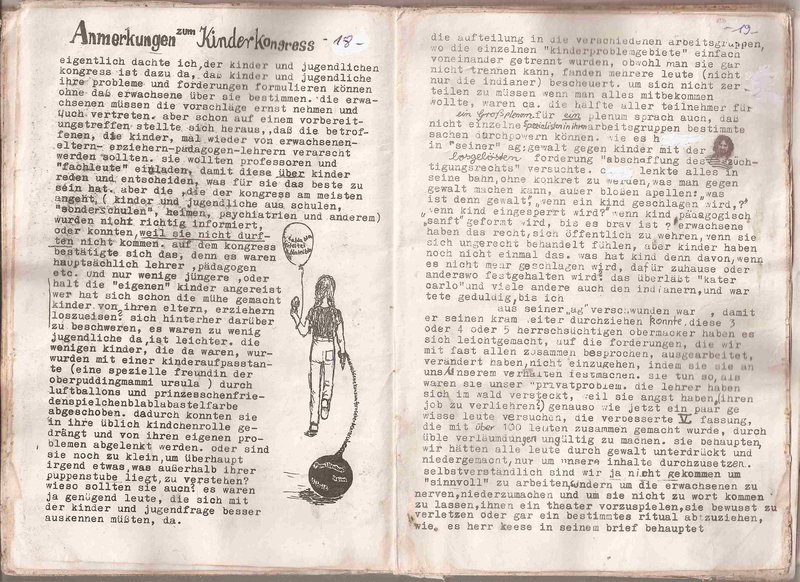 Anmerkungen zum Kinderkongress -18-
eigentlich dachte ich, der kinder und jugendlichen
kongress ist dazu da, daß kinder und jugendliche
ihre probleme und forderungen formulieren können
ohne daß erwachsene über sie bestimmen. die erwa-
chsenen müssen die vorschläge ernst nehmen und
auch vertreten. aber schon auf einem vorbereit-
ungstreffen stellte sich heraus, daß die betrof-
fenen, die kinder, mal wieder von erwachsenen-
eltern- erziehern-pädagogen-lehrern verarscht
werden sollten. sie wollten professoren und
"fachleute" einladen, damit diese über kinder
reden und entscheiden, was für sie das beste zu
sein hat. aber die ,die der kongress am meisten
angeht,( kinder und jugendliche aus schulen,
"sonderschulen", heimen, psychiatrien und anderem)
wurden nicht richtig informiert,
oder konnten, weil sie nicht durf-
ten nicht kommen. auf dem kongress
bestätigte sich das, denn es waren
hauptsächlich lehrer ,pädagogen
etc. und nur wenige jüngere ,oder
halt die "eigenen" kinder angereist
wer hat sich schon die mühe gemacht
kinder von ihren eltern, erziehern
loszueisen? sich hinterher darüber
zu beschweren, es waren zu wenig
jugendliche da,ist leichter. die
wenigen kinder, die da waren, wur-
wurden mit einer kinderaufpasstan-
te (eine spezielle freundin der
oberpuddingmammi ursula ) durch
luftballons und prinzesschenfrie-
denspielchenblablabastelfarbe
abgeschoben. dadurch konnten sie
in ihre üblich kindchenrolle ge-
drängt und von ihren eigenen pro-
blemen abgelenkt werden. oder sind
sie noch zu klein,um überhaupt
irgend etwas,was außerhalb ihrer
puppenstube liegt,zu verstehen?
wieso sollten sie auch? es waren
ja genügend leute, die sich mit
der kinder und jugendfrage besser
auskennen müßten, da.
-19-
die aufteilung in die verschiedenen arbeitsgruppen,
wo die einzelnen "kinderproblemgebiete" einfach
voneinander getrennt wurden, obwohl man sie gar
nicht trennen kann, fanden mehrere leute (nicht
nur die indianer) bescheuert. um sich nicht zer-
teilen zu müssen wenn man alles mitbekommen
wollte, waren ca. die hälfte aller teilnehmer für
ein Großplenum für ein plenum sprach auch, daß
nicht einzelne spezialisten in ihren arbeitsgruppen bestimmte
sachen durchpowern können. wie es h
in "seiner" ag:gewalt gegen kinder mit der
losgelösten forderung "abschaffung des züch-
tigungsrechts" versuchte. lenkte alles in
seine bahn,ohne konkret zu werden,was man gegen
gewalt machen kann, außer blöden apellen, was
ist denn gewalt, "wenn ein kind geschlagen wird,?
wenn kind eingesperrt wird? wenn kind pädagogisch
"sanft" geformt wird, bis es brav ist? erwachsene
haben das recht,sich öffentlich zu wehren,wenn sie
sich ungerecht behandelt fühlen, aber kinder haben
noch nicht einmal das. was hat kind denn davon,wenn
es nicht mehr geschlagen wird, dafür zuhause oder
anderswo festgehalten wird? das überläßt "kater
carlo"und viele andere auch den indianern,und war
tete geduldig,bis ich
aus seiner "ag" verschwunden war , damit
er seinen kram weiter durchziehen konnte.diese 3
oder 4 oder 5 herrschsüchtigen obermacker haben es
sich leichtgemacht, auf die forderungen, die wir
mit fast allen zusammen besprochen, ausgearbeitet,
verändert haben,nicht einzugehen, indem sie sie an
uns/unserem verhalten festmachen. sie tun so,als
waren sie unser "privatproblem. die lehrer haben
sich im wald versteckt, weil sie angst haben,(ihren
job zu verliehren!) genauso wie jetzt ein paar ge
wisse leute versuchen, die verbesserte V. fassung,
die mit über 100 leuten zusammen gemacht wurde, durch
üble verläumdungen ungültig zu machen. sie behaupten,
wir hätten alle leute durch gewalt unterdrückt und
niedergemacht,nur um unsere inhalte durchzusetzen.
selbstverständlich sind wir ja nicht gekommen um
"sinnvoll" zu arbeiten,sondern um die erwachsenen zu
nerven,niederzumachen und um sie nicht zu wort kommen
zu lassen,ihnen ein theater vorzuspielen,sie bewusst zu
verletzen oder gar ein bestimmtes ritual abzuziehen,
wie es herr keese in seinem brief behauptet